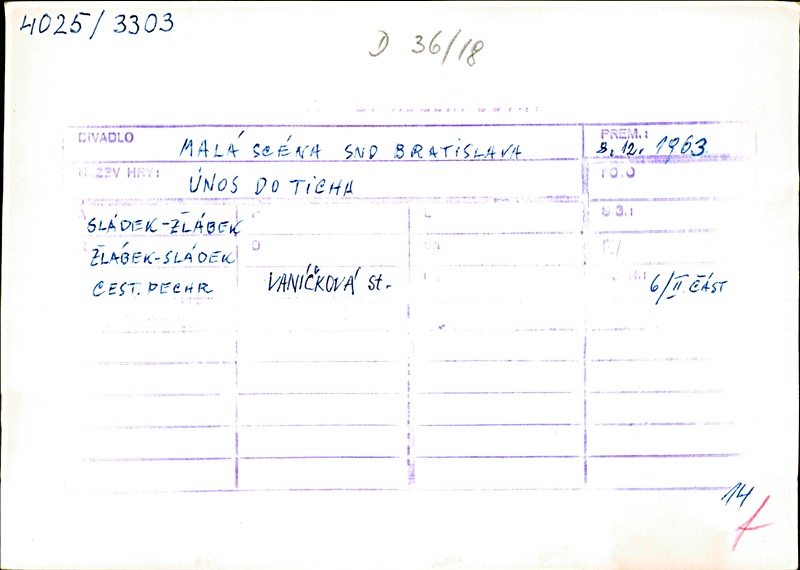 4025/3303
D 36/18
DIVADLO MALÁ SCÉNA SND BRATISLAVA PREM.: 8.12. 1963
ÚNOS DO TICHA
SLÁDEK-ŽLÁBEK
ŽLÁBEK-SLÁDEK
ČEST. PECHR VANÍČKOVÁ st. 6/II. ČÁST
14